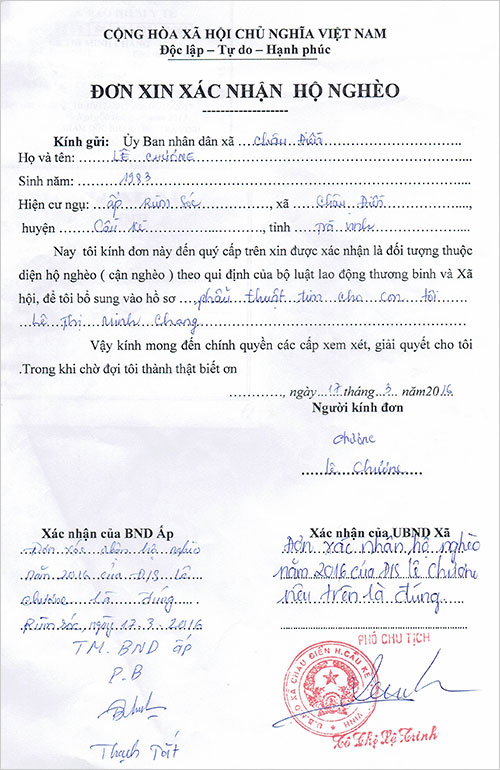 CỘNG HÒA XÃ HỘI CHỦ NGHĨA VIỆT NAM
Độc lập – Tự do – Hạnh phúc
ĐƠN XIN XÁC NHẬN HỘ NGHÈO
Kính gửi: Ủy Ban nhân dân xã Châu Điền
Họ và tên: LÊ CHƯƠNE
Sinh năm: 1983
Hiện cư ngụ: ấp Rùm Sóc, xã Châu Điền,
huyện Cầu Kè, tỉnh Trà Vinh
Nay tôi kính đơn này đến quý cấp trên xin được xác nhận là đối tượng thuộc
diện hộ nghèo ( cận nghèo ) theo qui định của bộ luật lao động thương binh và Xã
hội, để tôi bổ sung vào hồ sơ phẫu thuật tim cho con tôi
Lê Thị Minh Chang
Vậy kính mong đến chính quyền các cấp xem xét, giải quyết cho tôi
.Trong khi chờ đợi tôi thành thật biết ơn
, ngày 17 tháng 3 năm 2016
Người kính đơn
chươne
Lê Chươne
Xác nhận của BND Ấp
Đơn xác nhận hộ nghèo
năm 2016 của Đ/S Lê
chươne là đúng
Rùm Sóc, ngày 17.3.2016
TM. BND ấp
P.B
Thạch Tốt
Xác nhận của UBND Xã
Đơn xác nhận hộ nghèo
năm 2016 của Đ/S lê Chươne
nêu trên là đúng
PHÓ CHỦ TỊCH
U.B.N.D XÃ CHÂU ĐIỀN H.CẦU KÈ
Tô Thị Lệ Trinh